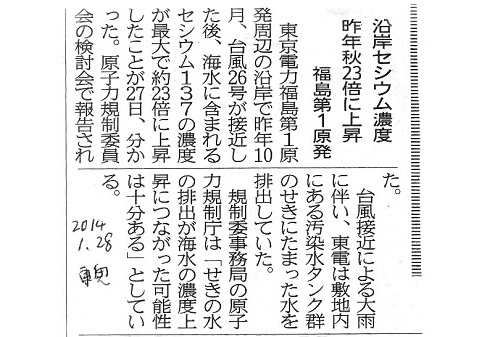 沿岸セシウム濃度
昨年秋23倍に上昇
福島第1原発
東京電力福島第1原
発周辺の沿岸で昨年10
月、台風26号が接近し
た後、海水に含まれる
セシウム137の濃度
が最大で約23倍に上昇
したことが27日、分か
った。原子力規制委員
会の検討会で報告され
た。
台風接近による大雨
に伴い、東電は敷地内
にある汚染水タンク群
のせきにたまった水を
排出していた。
規制委事務局の原子
力規制庁は「せきの水
の排出が海水の濃度上
昇につながった可能性
は十分ある」としてい
る。
2014
1.28